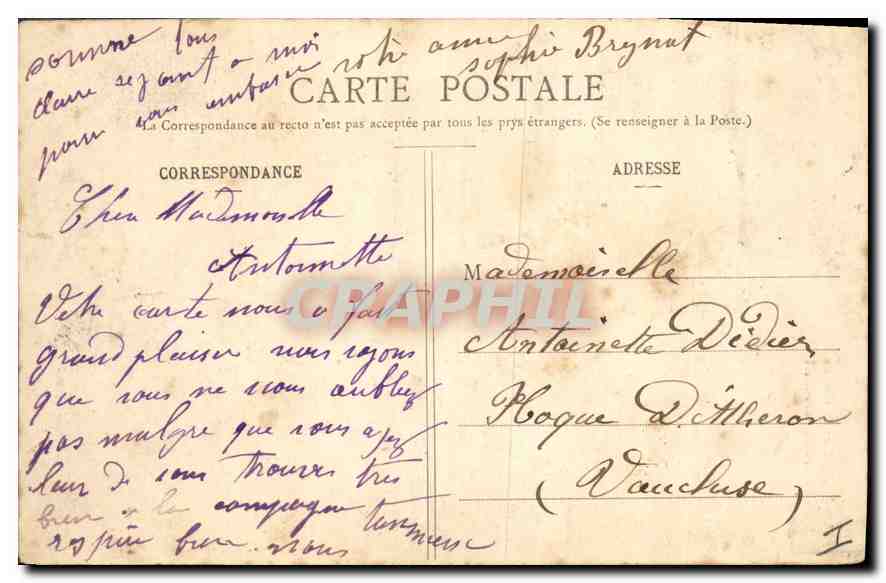 personne tous
Claire se joint a moi
pour vous embrasser votre amie
Sophie Breynat
CARTE POSTALE
La Correspondance au recto n'est pas acceptée par tous les pays étrangers. (Se renseigner à la Poste.)
CORRESPONDANCE
Cher Mademoiselle
Antoinette
Votre carte nous a fait
grand plaisir nous voyons
que vous ne nous oubliez
pas malgre que vous ayez
l'air de vous trouver tres
bien a la campagne
respire bien nous
ADRESSE
Mademoiselle
Antoinette Dédier
Hoque D'Atheron
(Vaucluse)
I
CPAPHIL